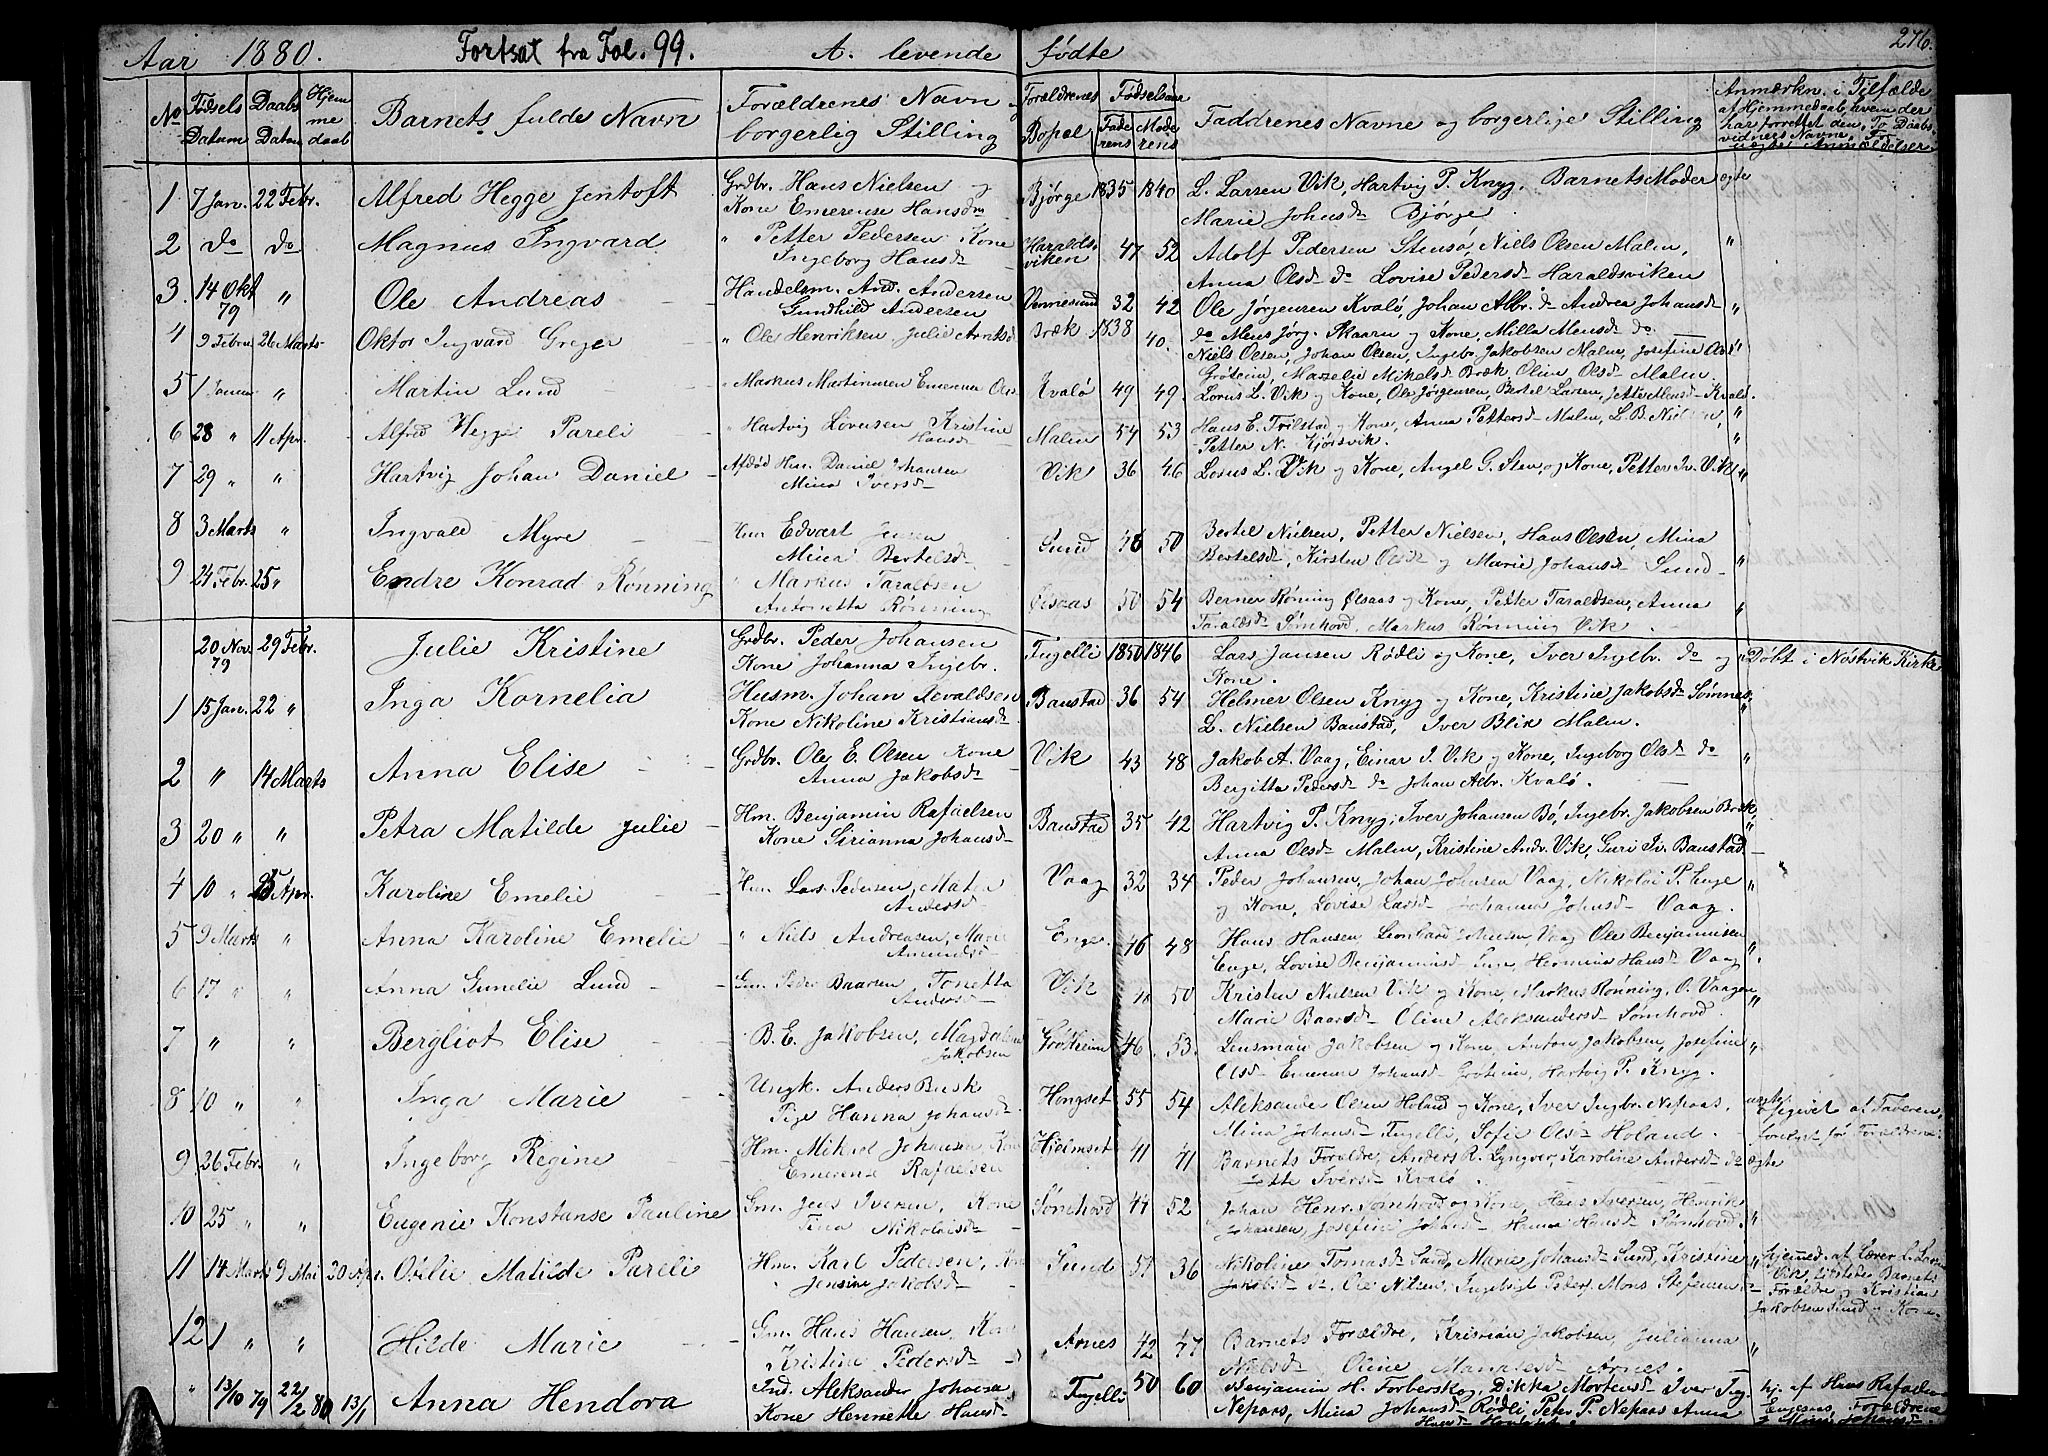 Aar 1880. Fortsat fra Fol. 99. A. levende fødte 276.
No Fødsels Datum Daabs Datum Hjemme daab Barnets fulde Navn Forældrenes Navn og borgerlig Stilling Forældrenes Bopæl Fødselsaar Faderens Moderens Faddrenes Navne og borgerlige Stilling Anmærkn. i Tilfælde
af Hjemmedaab, hvem der
har forrettet den, To Daabs-
vidnes Navne, For
uægte Anmældelser
1 7 Jan. 22 Febr. Alfred Hegge Jentoft Grdbr. Hans Nielsen og Bjørge 1835 1840 L. Larsen Vik, Hartvig P. Knyg, Barnets Moder ægte
Kone Emerense Hansd Marie Johnsd Bjørge
2 do do Magnus Ingvard " Petter Pedersen Kone Haraldsviken 47 52 Adolf Pedersen Stensø, Niels Olsen Malm, "
Ingeborg Hansd Anna Olsd do Lovise Pedersd Haraldsviken
3. 14 Okt 79 " Ole Andreas Handelsm. And. Andersen Vennesund 32 42 Ole Jørgensen Kvalø, Johan Albr. do Andrea Johansd "
Gundhild Andersen do Mens Jørg. Skaarn og Kone, Milla Mensd do.
4 9 Febru 26 Marts Oktor Ingvard Greger " Ole Henriksen, Julie Arntsd Bræk 1838 40. Niels Olsen, Johan Olsen, Ingebr. Jakobsen Malm, Josefine Olsd "
Grøteim, Marselie Mikelsd Bræk, Oline Olsd Malm.
5 1 Januar " Martin Lund " Markus Martinusen Emerense Olsd Kvalø 49 49. Lorns L. Vik og Kone, Ole Jørgensen, Bertel Larsen, Jette Mensd Kvalø.
6 28 " 11 Apr. Alfred Hegge Pareli " Hartvig Lornsen Kristine Hansd Malm 54 53 Hans E. Trilstad og Kone, Anna Pettersd Malm, L. B. Nielsen, "
Petter N. Kjørsvik. "
7 29 " " Hartvig Johan Daniel Afdød Hm. Daniel Johansen Vik 36 46 Lorns L. Vik og Kone, Angel G. Sten og Kone, Petter Iv. Vik "
Mina Iversd
8 3 Marts " Ingvald Myre Hm Edvart Jensen Sund 46 50 Bertil Nielsen, Petter Nielsen, Hans Olsen, Mina
Mina Bertelsd Bertelsd, Kirsten Olsd og Marie Johansd Sund "
9 24 Febr. 25 " Endre Konrad Rønning " Markus Taraldsen Ølsaas 50 54 Berner Rønning Ølsaas og Kone, Petter Taraldsen, Anna "
Antonetta Rønning Taraldsd Sømhovd, Markus Rønning Vik.
20 Nov. 79 29 Febr. Julie Kristine Grdbr. Peder Johansen Tugelli 1850 1846 Lars Jansen Rødli og Kone, Iver Ingebr. do og " Døbt i Nøstvik Kirke
Kone Johanna Ingebr. Kone.
1 15 Jan. 22 " Inga Kornelia Husm. Johan Aevaldsen Baustad 36 54 Helmer Olsen Knyg og Kone, Kristine Jakobsd Sømnes "
Kone Nikoline Kristiansd L. Nielsen Baustad, Iver Blix Malm.
2 " 14 Marts Anna Elise Grdbr. Ole E. Olsen Kone Vik 43 48 Jakob A. Vaag, Einar I. Vik og Kone, Ingeborg Olsd do "
Anna Jakobsd Bergitta Pedersd do Johan Albr. Kvalø.
3 20 " " Petra Matilde Julie Hm. Benjamin Rafaelsen Baustad 35 42 Hartvig P. Knyg, Iver Johansen Bø, Ingebr. Jakobsen Bræk, "
Kone Sirianna Johansd Anna Olsd Malm, Kristine Andr. Vik, Guri Iv. Baustad
4 10 " 25 Apr. Karoline Emelie Hm Lars Pedersen, Maten Vaag 32 34 Peder Johansen, Johan Johnsen Vaag, Nikolai P. Enge "
Andersd og Kone, Lovise Larsd Johanna Johnsd Vaag.
5 9 Marts " Anna Karoline Emelie " Niels Andreasen, Marie Enge 46 48 Hans Hansen Leonhard Johnsen Vaag Ole Benjaminsen "
Amundsd Enge, Lovise Benjaminsd Enge, Hermine Hansd Vaag
6 17 " " Anna Gunelie Lund Gm Peder Baarsen Tonetta Vik 50 Kristen Nielsen Vik og Kone, Markus Rønning, O. Vaagen "
Andersd Marie Baarsd Oline Aleksandersd Sømhovd.
7 " " Bergliot Elise B. E. Jakobsen, Magdalena Grøtheim 46 53. Lensmand Jakobsen og Kone, Anton Jakobsen, Josefine "
Jakobsen Olsd Emerense Johansd Grøtheim, Hartvig P. Knyg.
8 10 " " Inga Marie Ungk. Anders Busk Hongset 55 54 Aleksander Olsen Holand og Kone, Iver Ingbr. Nepaas, uægte opgivet af Faderen,
Pige Hanna Johansd Mina Johansd Tugelli, Sofie Olsd Holand.
9 26 Febr. " Ingeborg Regine Hm. Mikael Johansen Kone Hjelmset 41 41 Barnets Forældre, Anders R. Lyngver, Karoline Andersd do ægte
Emerense Rafaelsen Jette Iversd Kvalø
10 25 " " Eugenie Konstanse Pauline Gm. Jens Iversen, Kone Sømhovd 44 52 Johan Henr. Sømhovd og Kone, Hans Iversen, Henrik "
Tina Nikolaisd Johansen, Josefine Johansd Hanna Hansd Sømhovd.
11 14 Marts 9 Mai 30 Apr. Ovelie Matilde Pareli Hm. Karl Pedersen, Kone Sund 57 36 Nikoline Tomasd Sund, Marie Johansd Sund, Kristine " hjemmed. af Lærer L. Larsen
Jensine Jakobsd Jakobsd do. Ole Nilsen, Ingebrigt Peders, Mons Stefensen Vik, tilstede Barnets
Forældre og Kristian
Jakobsen Sund og Kone
12 1 " " Hilde Marie Gm. Hans Hansen, Kone Arnes 42 47 Barnets Forældre, Kristian Jakobsen, Julianna "
Kristine Pedersd Nielsd Oline Arnes.
" 13/10 79 22/2 80 13/1 Anna Hendora Ind. Aleksander Johansen Tugelli 50 60 Benjamin H. Forberskog, Dikka Mortensd Iver Ing. hj. af Hans Rafaelsen
Kone Hennette Hansd Nepaas, Mina Johansd Rødli Peter P. Nepaas Anna Forældrene
Hansd og Mina Johansd